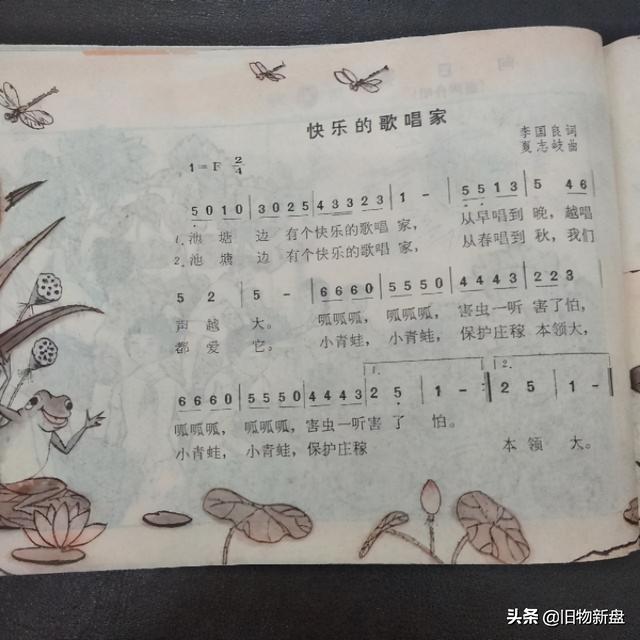 快乐的歌唱家
李国良词
夏志岐曲
1=F 2/4
5 0 1 0 | 3 0 2 5 | 4 3 3 2 3 | 1 - | 5 5 1 3 | 5 4 6 |
1.池 塘 边 有个快乐的歌唱 家， 从早唱到 晚，越唱
2.池 塘 边 有个快乐的歌唱 家， 从春唱到 秋，我们
5 2 | 5 - | 6 6 6 0 | 5 5 5 0 | 4 4 4 3 | 2 2 3 |
声 越 大。 呱呱呱， 呱呱呱， 害虫一听 害了怕，
都 爱 它。 小青蛙， 小青蛙， 保护庄稼 本领大，
1. 2.
6 6 6 0 | 5 5 5 0 | 4 4 4 3 | 2 5 | 1 - :‖ 2 5 | 1 - ‖
呱呱呱， 呱呱呱， 害虫一听害 了 怕。
小青蛙， 小青蛙， 保护庄稼 本 领 大。
头条 @旧物新盘